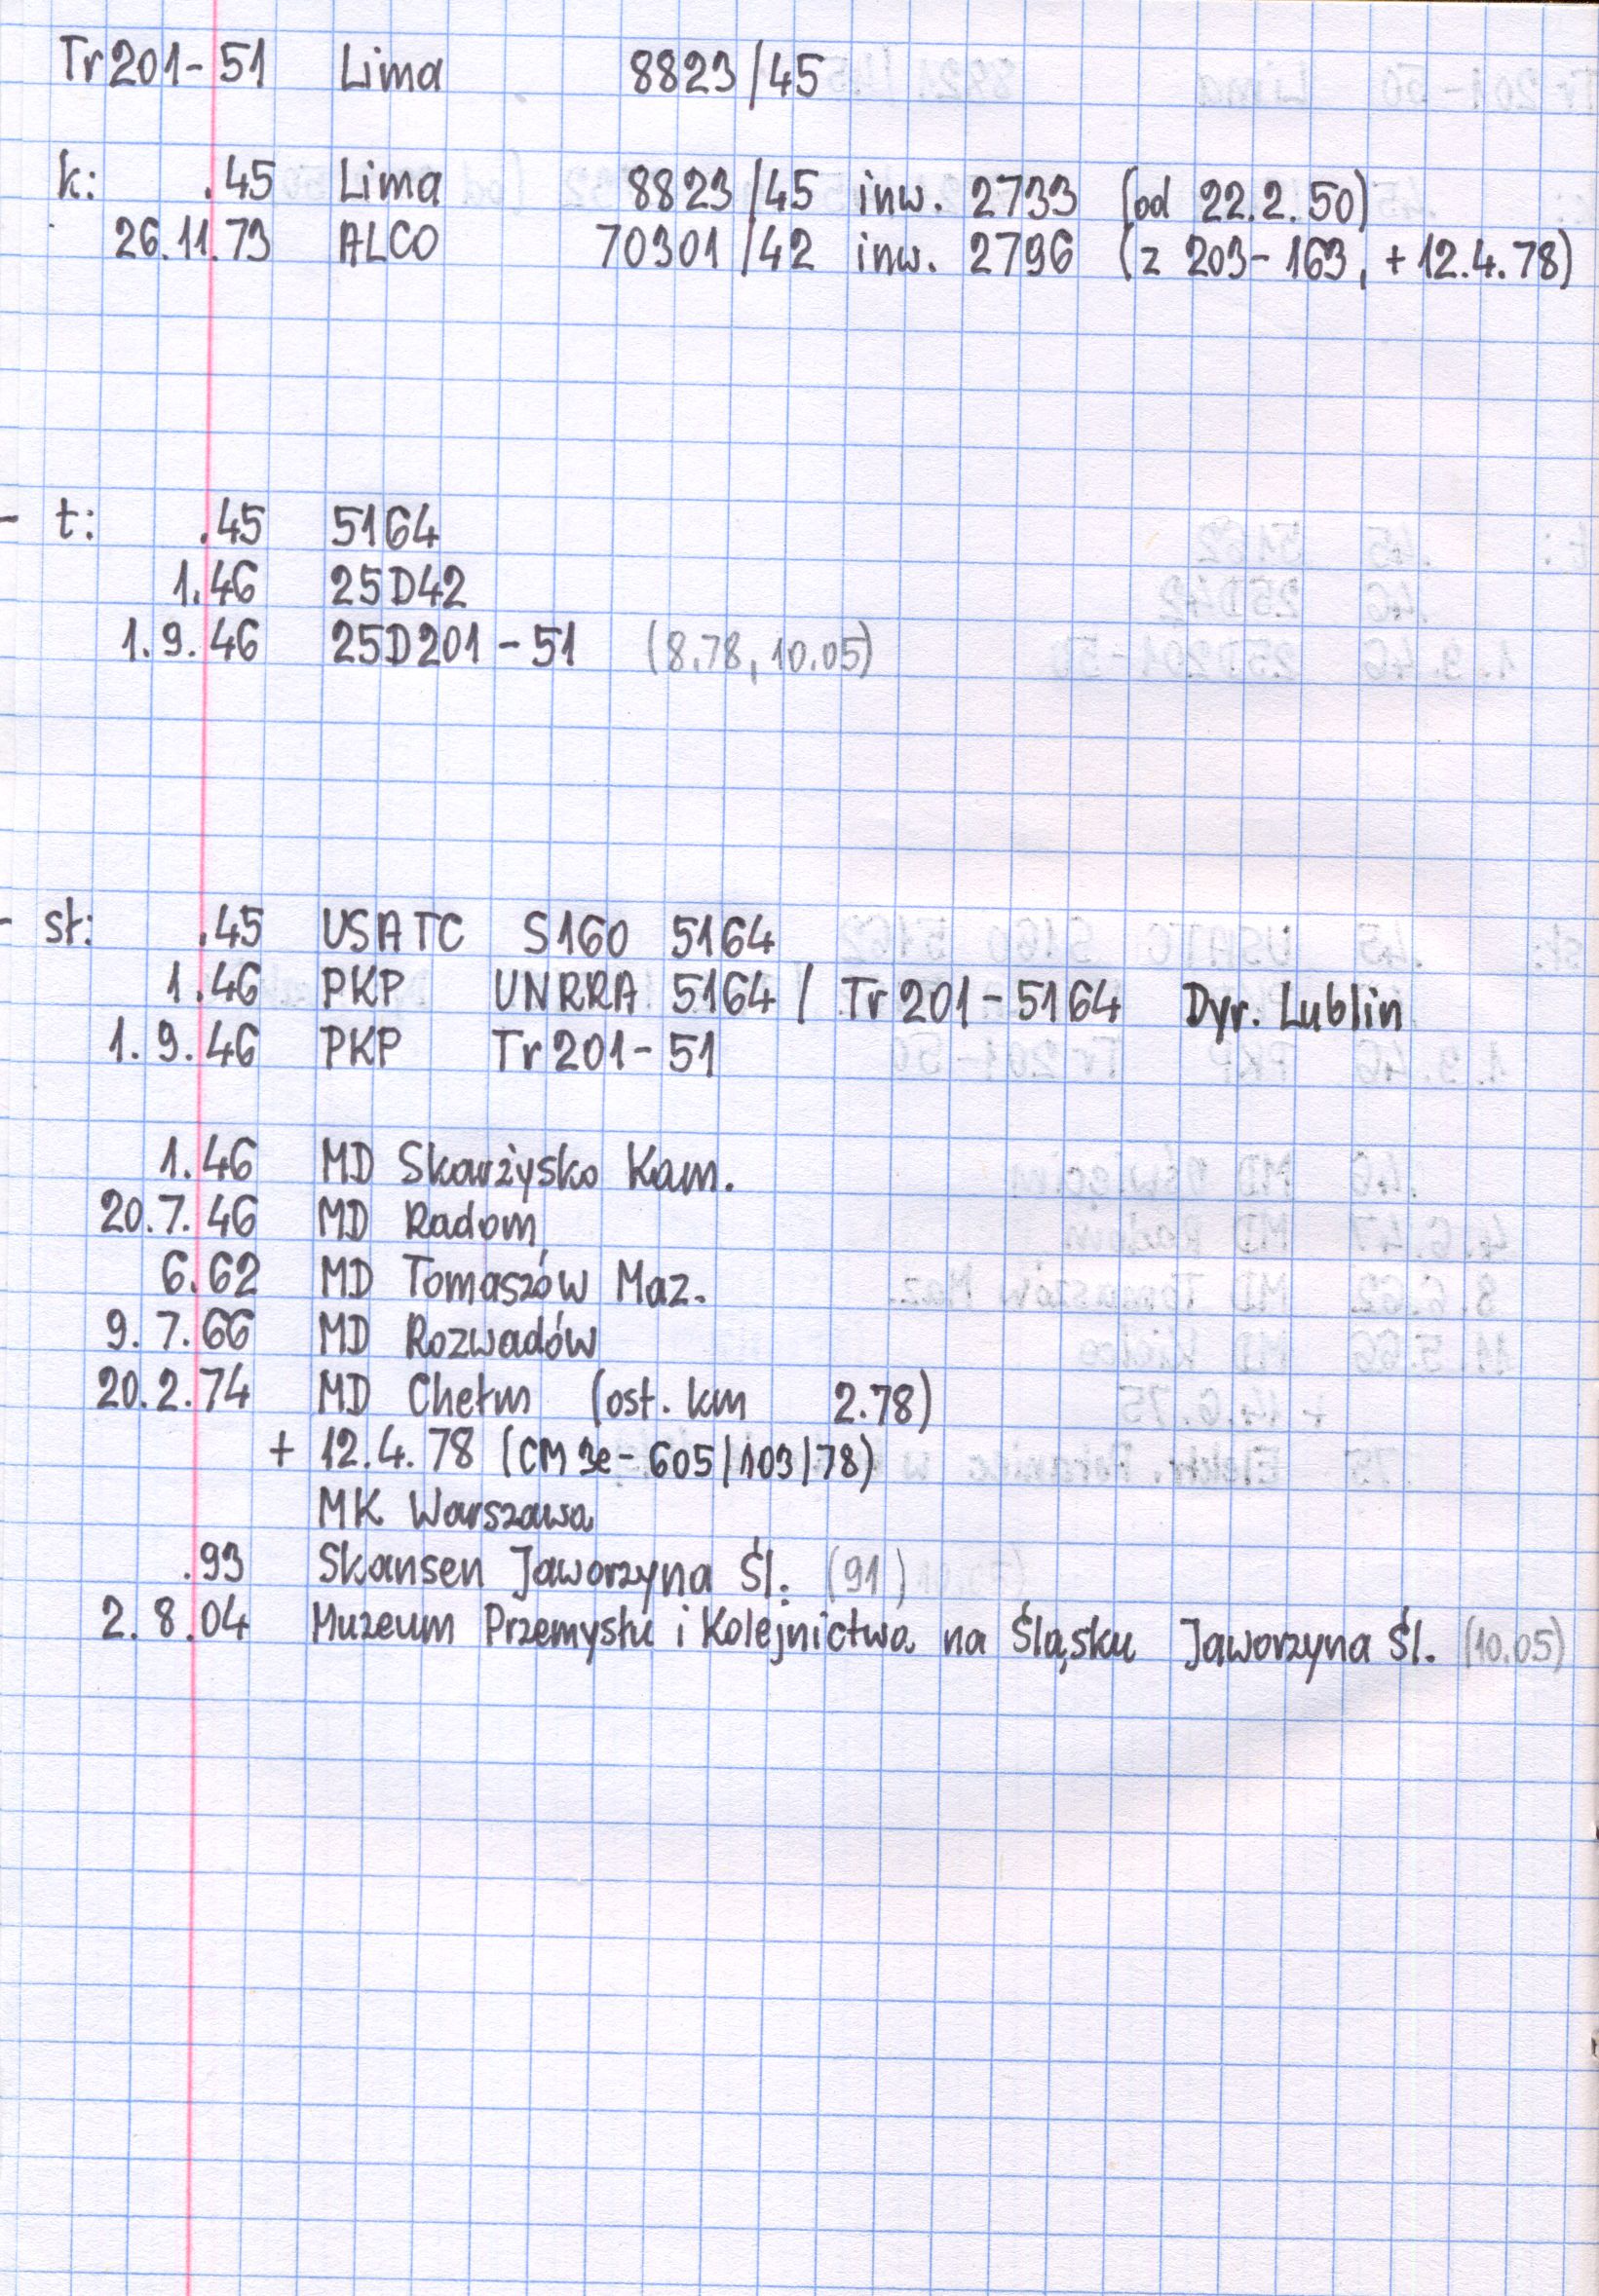 Tr201-51 Lima 8823/45
k: .45 Lima 8823/45 inw. 2733 (od 22.2.50)
26.11.73 ALCO 70301/42 inw. 2796 (z 203-163, +12.4.78)
- t: .45 5164
1.46 25D42
1.9.46 25D201-51 (8.78, 10.05)
- st: .45 USATC S160 5164
1.46 PKP UNRRA 5164 / Tr201-5164 Dyr. Lublin
1.9.46 PKP Tr201-51
1.46 MD Skarżysko Kam.
20.7.46 MD Radom
6.62 MD Tomaszów Maz.
9.7.66 MD Rozwadów
20.2.74 MD Chełm (ost. km 2.78)
+ 12.4.78 (CM3e-605/103/78)
MK Warszawa
.93 Skansen Jaworzyna Śl. (91)
2.8.04 Muzeum Przemysłu i Kolejnictwa na Śląsku Jaworzyna Śl. (10.05)